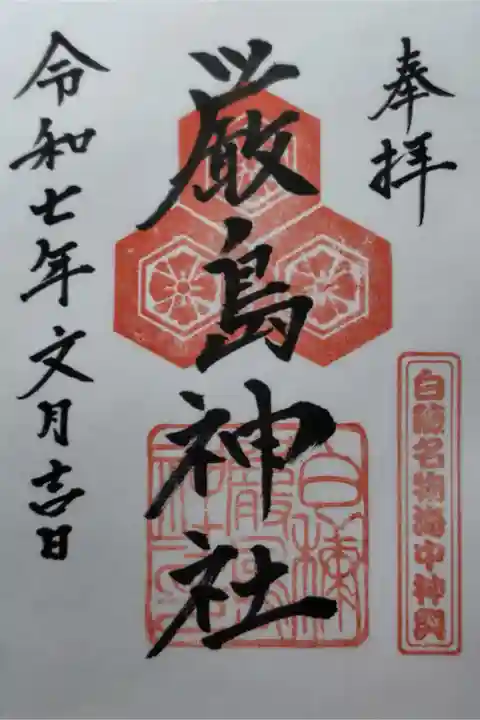 奉拝
白糠名物海中神輿
厳島神社
令和七年文月吉日